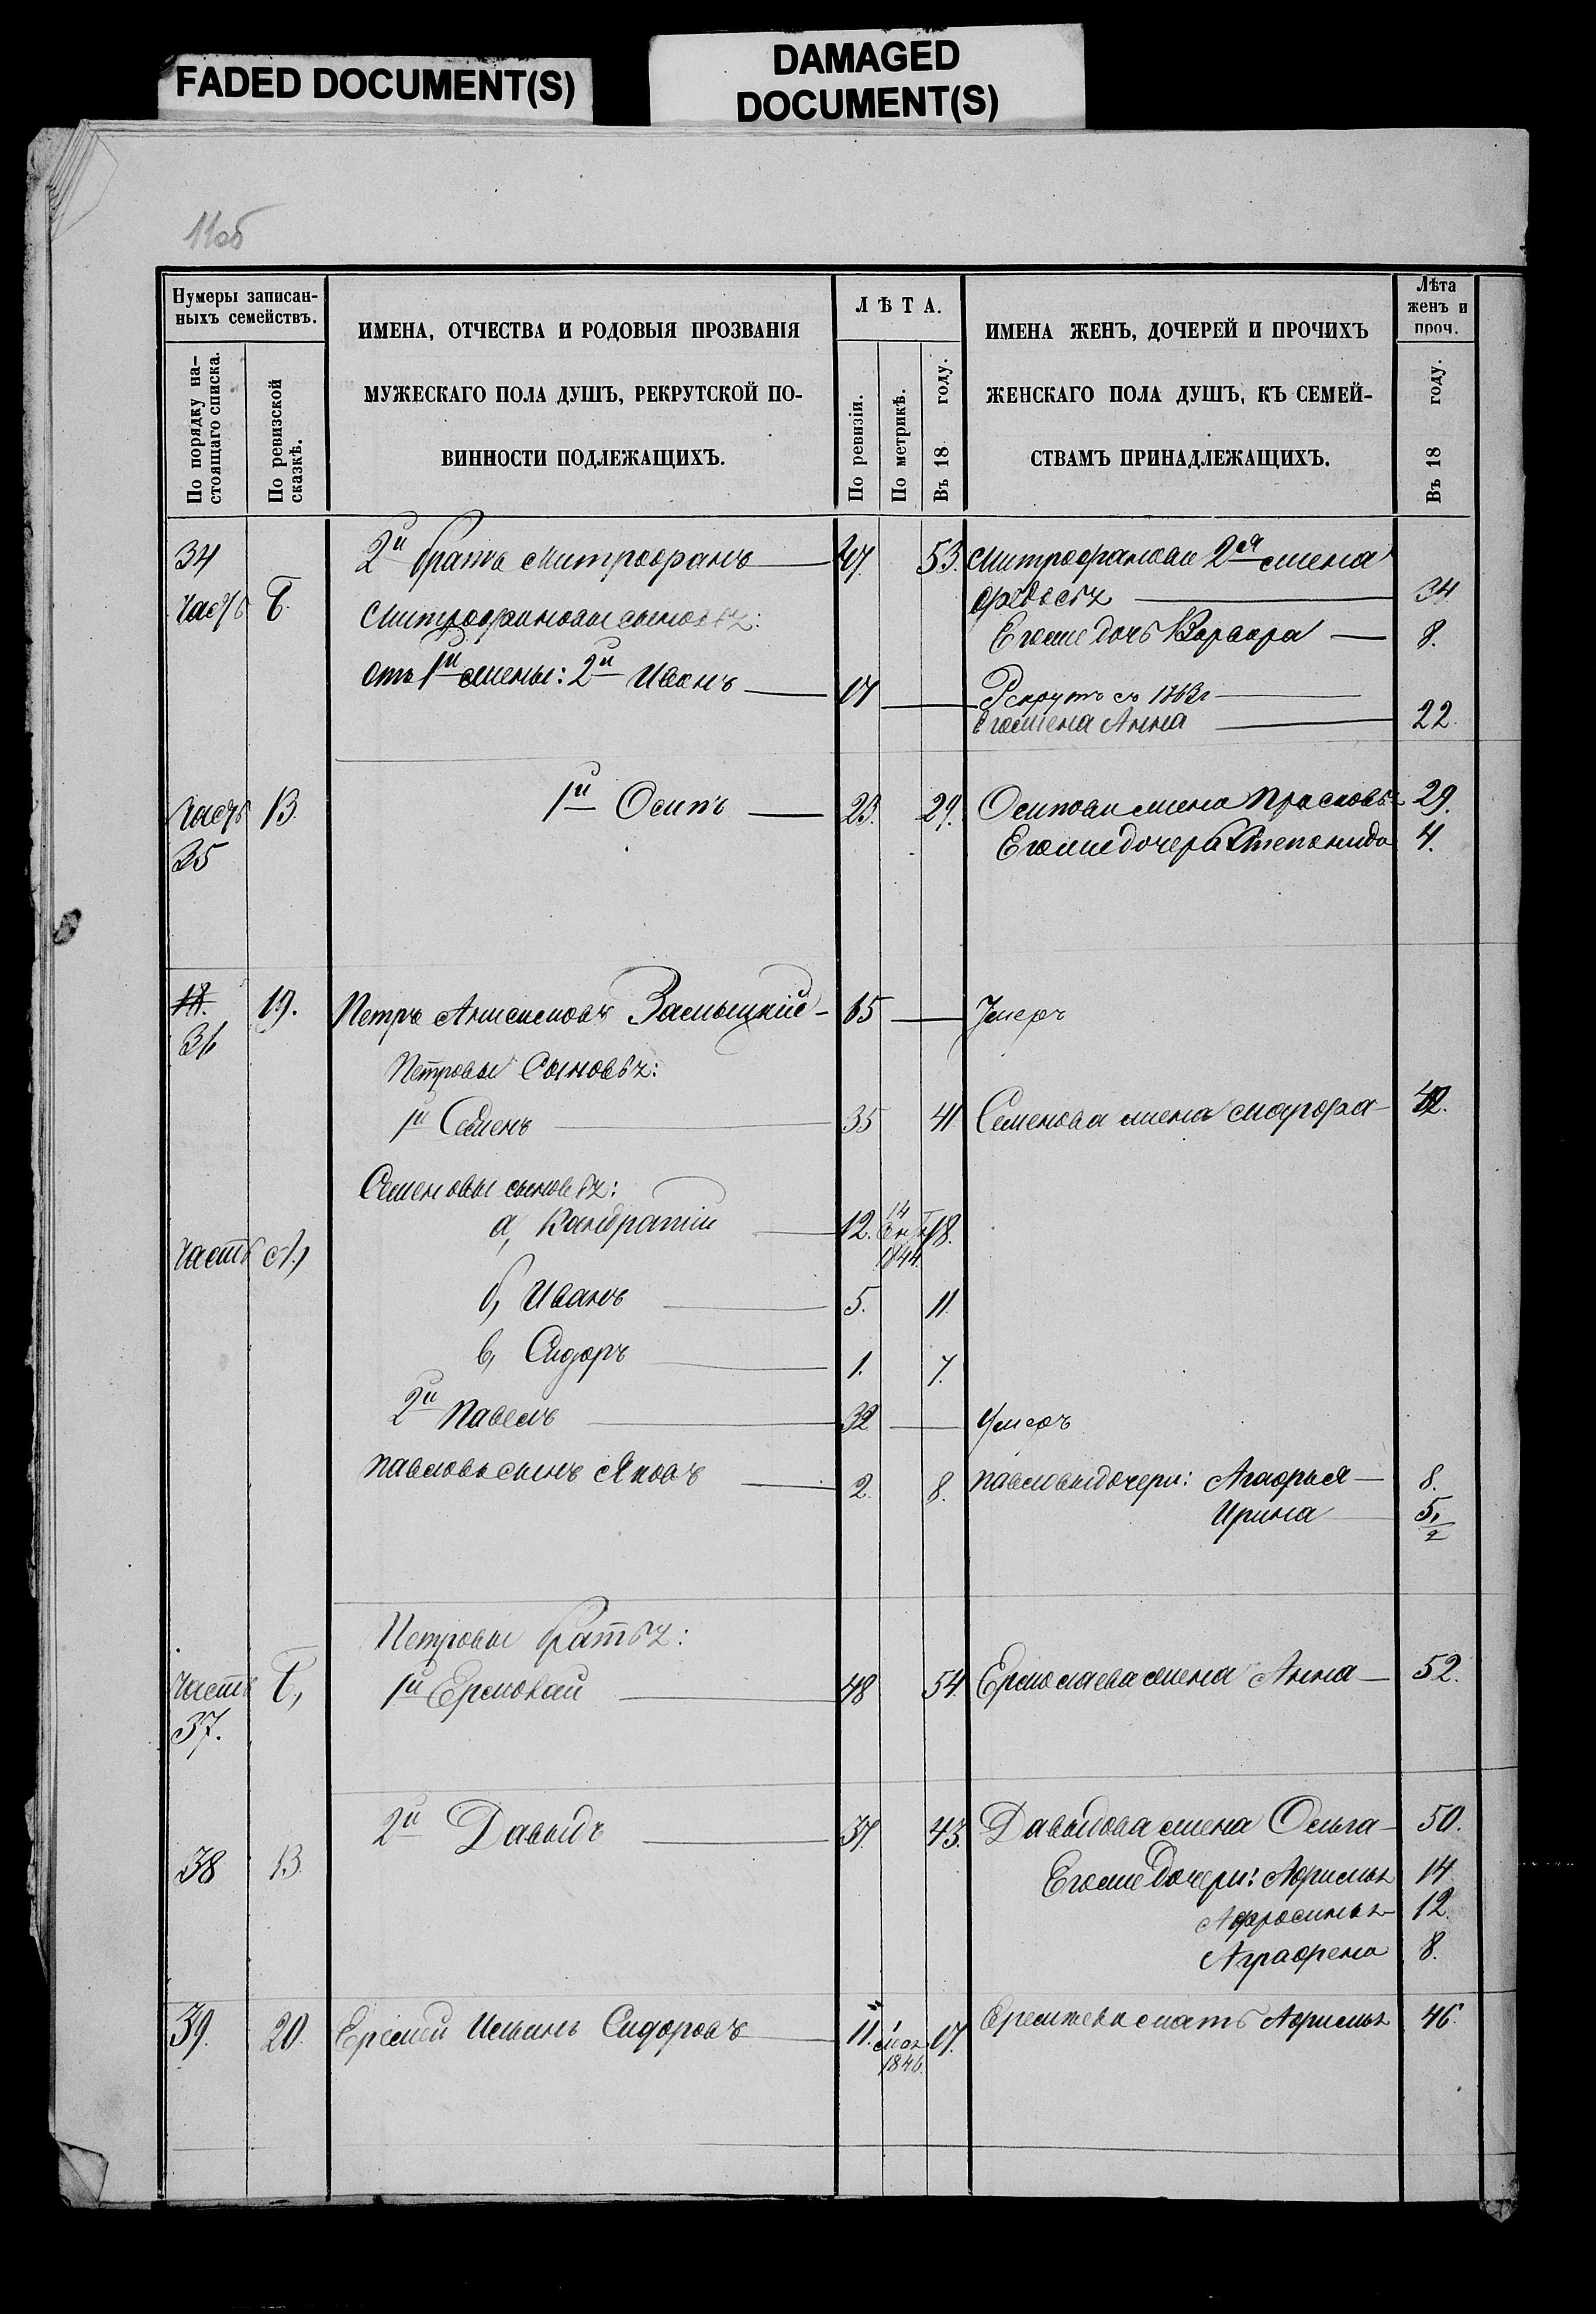 FADED DOCUMENT(S)
DAMAGED
DOCUMENT(S)
11об
Нумеры записан-
ныхъ семействъ.
По порядку на-
стоящаго списка.
По ревизской
сказкѣ.
ИМЕНА, ОТЧЕСТВА И РОДОВЫЯ ПРОЗВАНІЯ
МУЖЕСКАГО ПОЛА ДУШЪ, РЕКРУТСКОЙ ПО-
ВИННОСТИ ПОДЛЕЖАЩИХЪ.
ЛѢТА.
По ревизіи.
По метрикѣ.
Въ 18 году.
ИМЕНА ЖЕНЪ, ДОЧЕРЕЙ И ПРОЧИХЪ
ЖЕНСКАГО ПОЛА ДУШЪ, КЪ СЕМЕЙ-
СТВАМЪ ПРИНАДЛЕЖАЩИХЪ.
Лѣта
женъ и
проч.
Въ 18 году.
34 2й братъ Митрофанъ 47. 53. Митрофанова 2ая жена
Федосья 34
часть Б. Митрофановы сыновья:
Его же дочь Варвара 8.
Отъ 1й жены: 2й Иванъ 17 Рекрутъ съ 1863г
Его жена Анна 22
часть В. 1й Осипъ 23. 29. Осипова жена Прасковья 29.
35 Его же дочери Степанида 4.
18. 19. Петръ Анисимовъ 65 Умеръ
36
Петровы Сыновья:
1й Семенъ 35 41. Семенова жена 42.
Семеновы сыновья:
а, Кандратій 12. 14 1844. 18.
часть А,
б, Иванъ 5. 11.
в, Сидоръ 1. 7.
2й Павелъ 32 Умеръ
Павловъ сынъ Яковъ 2. 8. Павловы дочери: Агафья 8.
Ирина 5 1/2
Петровы братья:
часть Б, 1й Ермолай 48 54. Ермолаева жена Анна 52.
37.
2й Давыдъ 37. 43. Давыдова жена Ольга 50.
38 В. Его же Дочери: Афимья 14
Афросинья 12.
Аграфена 8.
39. 20. Еремей Ильинъ Сидоровъ 11. 1 мая 1846. 17. Еремѣева мать Афимья 46.